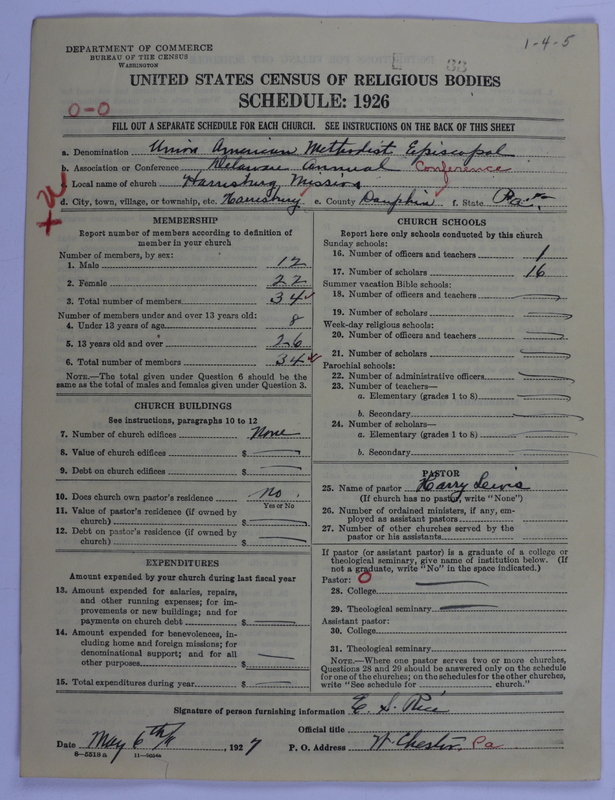 1-4-5
DEPARTMENT OF COMMERCE
BUREAU OF THE CENSUS
WASHINGTON
UNITED STATES CENSUS OF RELIGIOUS BODIES
SCHEDULE: 1926
0-0
FILL OUT A SEPARATE SCHEDULE FOR EACH CHURCH. SEE INSTRUCTIONS ON THE BACK OF THIS SHEET
a. Denomination Union American Methodist Episcopal
b. Association or Conference Delaware Annual Conference
c. Local name of church Harrisburg Mission
d. City, town, village, or township, etc. Harrisburg e. County Dauphin f. State Pa.
MEMBERSHIP
Report number of members according to definition of
member in your church
Number of members, by sex:
1. Male 12
2. Female 22
3. Total number of members 34
Number of members under and over 13 years old:
4. Under 13 years of age 8
5. 13 years old and over 26
6. Total number of members 34
NOTE.—The total given under Question 6 should be the
same as the total of males and females given under Question 3.
CHURCH BUILDINGS
See instructions, paragraphs 10 to 12
7. Number of church edifices None
8. Value of church edifices $
9. Debt on church edifices $
10. Does church own pastor's residence no.
Yes or No
11. Value of pastor's residence (if owned by
church) $
12. Debt on pastor's residence (if owned by
church) $
EXPENDITURES
Amount expended by your church during last fiscal year
13. Amount expended for salaries, repairs,
and other running expenses; for im-
provements or new buildings; and for
payments on church debt $
14. Amount expended for benevolences, in-
cluding home and foreign missions; for
denominational support; and for all
other purposes $
15. Total expenditures during year $
CHURCH SCHOOLS
Report here only schools conducted by this church
Sunday schools:
16. Number of officers and teachers 1
17. Number of scholars 16
Summer vacation Bible schools:
18. Number of officers and teachers
19. Number of scholars
Week-day religious schools:
20. Number of officers and teachers
21. Number of scholars
Parochial schools:
22. Number of administrative officers
23. Number of teachers—
a. Elementary (grades 1 to 8)
b. Secondary
24. Number of scholars—
a. Elementary (grades 1 to 8)
b. Secondary
PASTOR
25. Name of pastor Harry Lewis
(If church has no pastor, write "None")
26. Number of ordained ministers, if any, em-
ployed as assistant pastors
27. Number of other churches served by the
pastor or his assistants
If pastor (or assistant pastor) is a graduate of a college or
theological seminary, give name of institution below. (If
not a graduate, write "No" in the space indicated.)
Pastor: 0
28. College
29. Theological seminary
Assistant pastor:
30. College
31. Theological seminary
NOTE.—Where one pastor serves two or more churches,
Questions 28 and 29 should be answered only on the schedule
for one of the churches; on the schedules for the other churches,
write "See schedule for church."
Signature of person furnishing information E. S. Rice
Official title
Date May 6th, 1927 P. O. Address W. Chester, Pa
8-5518a